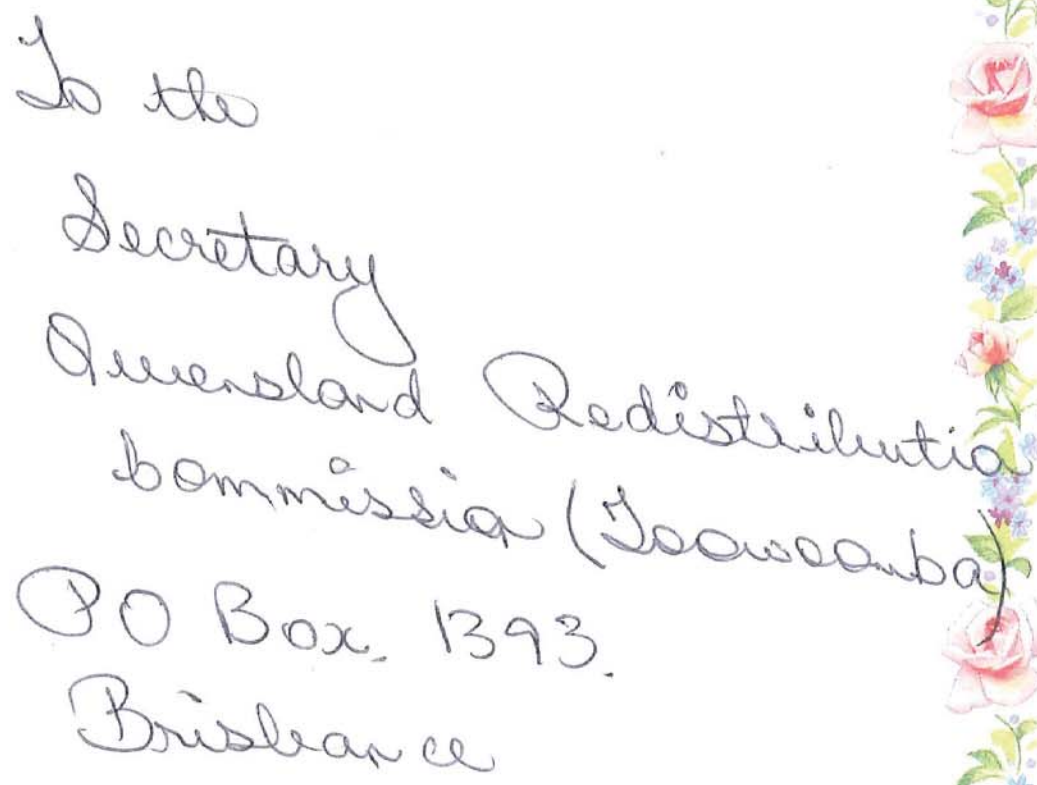 To the
Secretary
Queensland Redistributio
Commission (Toowoomba)
PO Box. 1393.
Brisbance